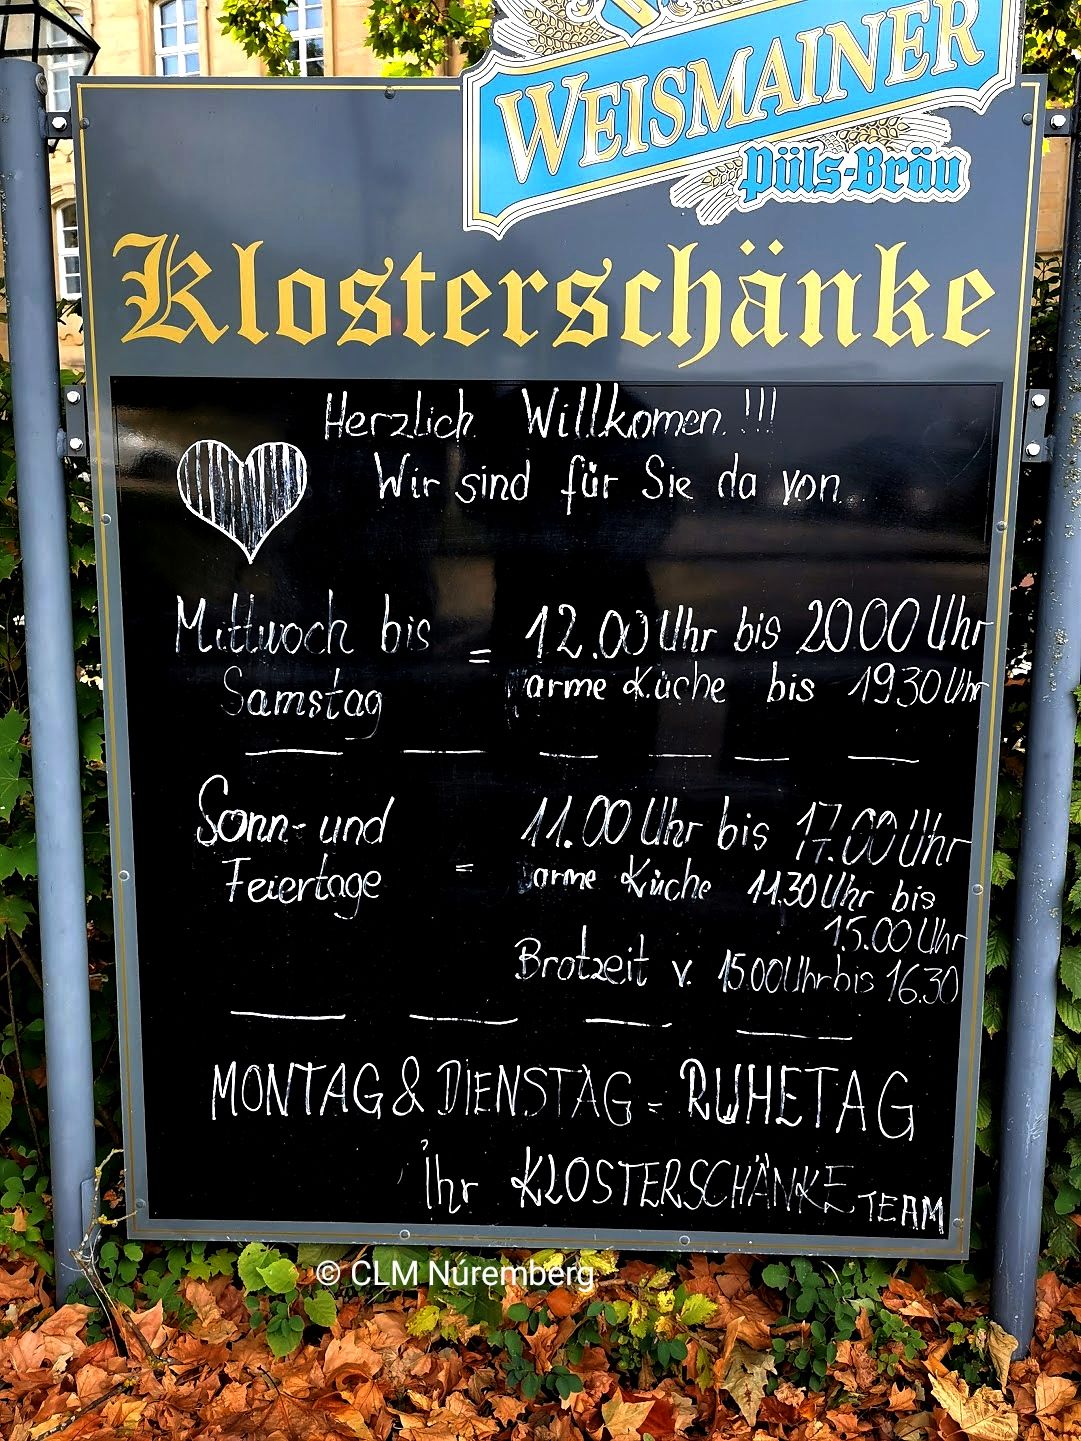 WEISMAINER
Püls-Bräu
Klosterschänke
Herzlich Willkomen!!!
Wir sind für Sie da von
Mittwoch bis = 12.00 Uhr bis 2000 Uhr
Samstag warme Küche bis 1930 Uhr
Sonn- und 11.00 Uhr bis 17.00 Uhr
Feiertage = warme Küche 11.30 Uhr bis
15.00 Uhr
Brotzeit v. 15.00 Uhr bis 16.30
MONTAG & DIENSTAG = RUHETAG
Ihr KLOSTERSCHÄNKE TEAM
© CLM Núremberg